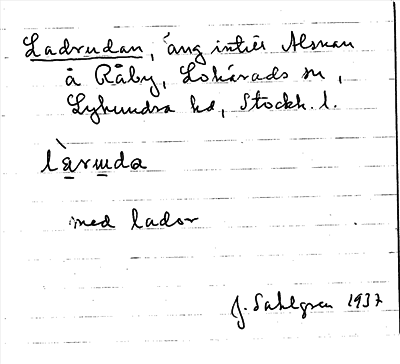 Ladrudan, äng intill Alsnan
å Råby, Lohärads sn,
Lyhundra hd, Stockh. l.
làruda
med lador
J. Sahlgren 1937